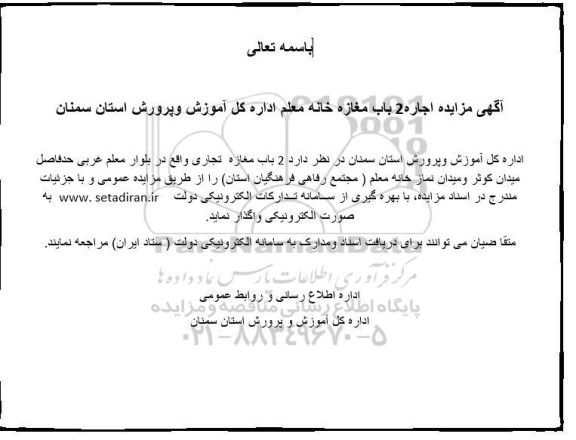 باسمه تعالی
آگهی مزایده اجاره2 باب مغازه خانه معلم اداره کل آموزش وپرورش استان سمنان
اداره کل آموزش وپرورش استان سمنان در نظر دارد 2 باب مغازه تجاری واقع در بلوار معلم غربی حدفاصل
میدان کوثر ومیدان نماز خانه معلم ( مجتمع رفاهی فرهنگیان استان) را از طریق مزایده عمومی و با جزئیات
مندرج در اسناد مزایده، با بهره گیری از سامانه تدارکات الکترونیکی دولت www.setadiran.ir به
صورت الکترونیکی واگذار نماید.
متقاضیان می توانند برای دریافت اسناد ومدارک به سامانه الکترونیکی دولت ( ستاد ایران) مراجعه نمایند.
مرکز فرآوری اطلاعات پارس نماد داده ها
اداره اطلاع رسانی و روابط عمومی
پایگاه اطلاع رسانی مناقصه و مزایده
اداره کل آموزش و پرورش استان سمنان
۰۲۱-۸۸۳۴۹۶۷۰-۵